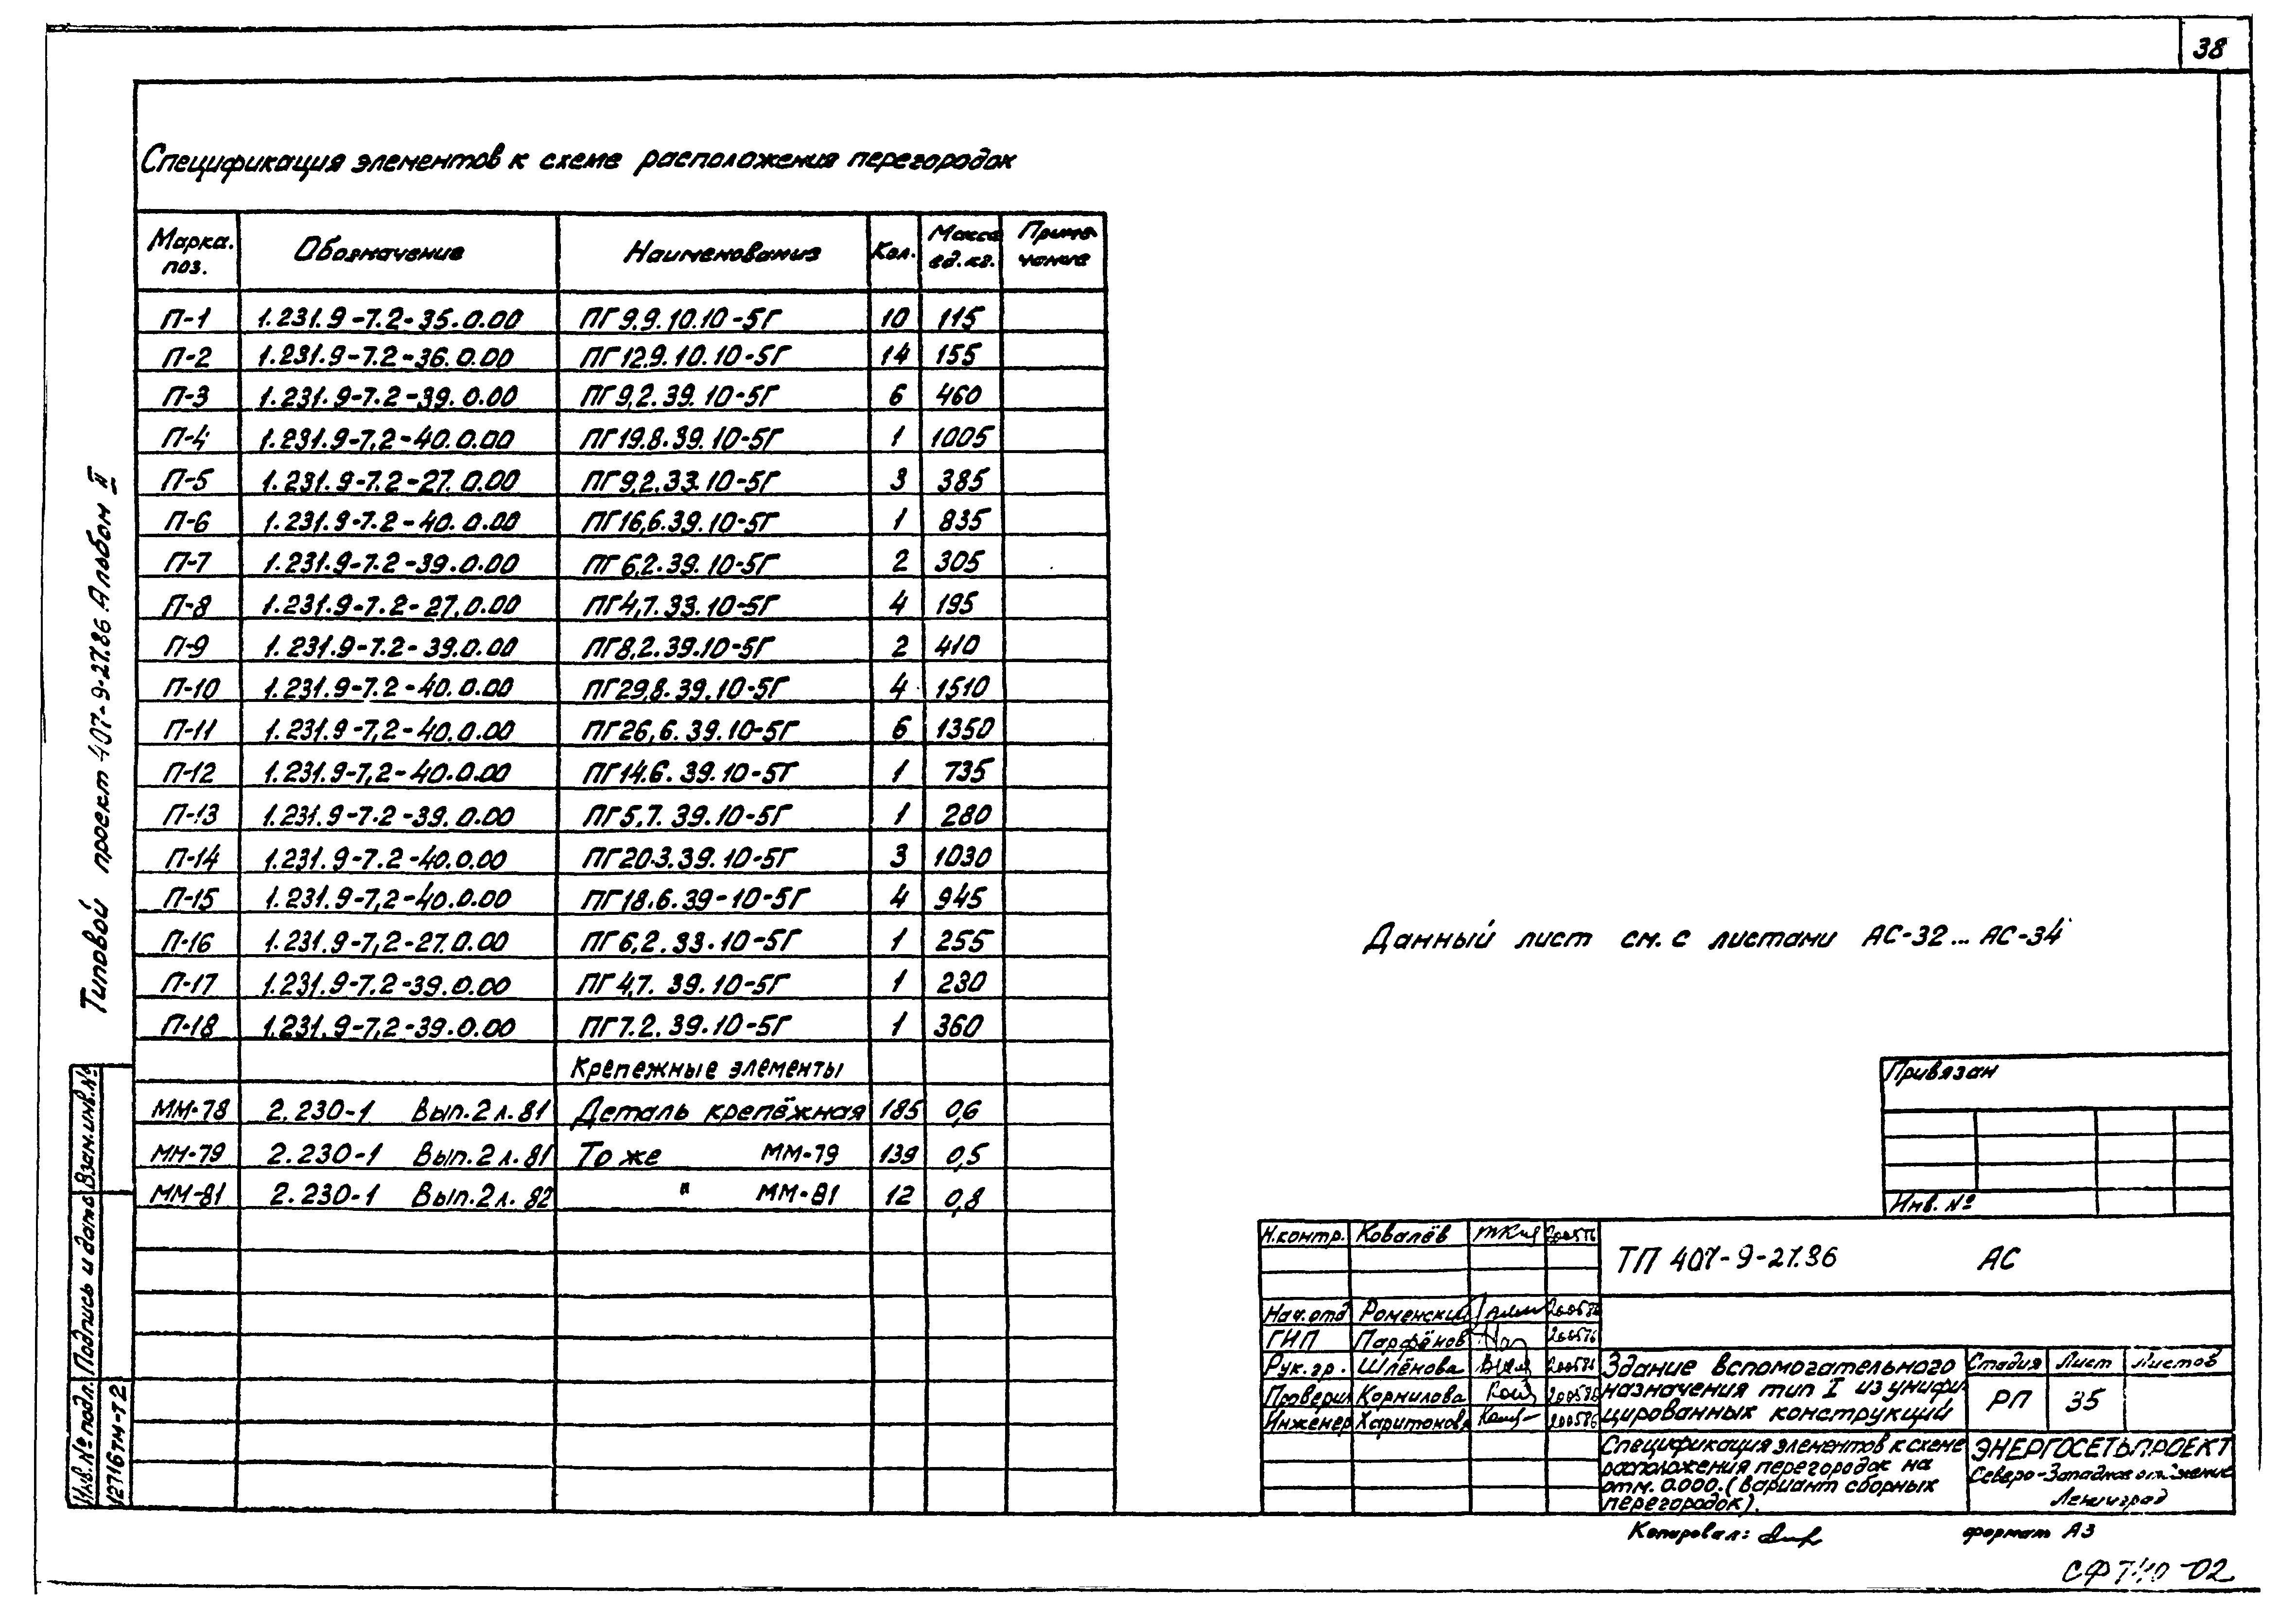 38
Спецификация элементов к схеме расположения перегородок
Марка. поз. Обозначение Наименование Кол. Масса ед.кг. Приме- чание
П-1 1.231.9-7.2-35.0.00 ПГ9.9.10.10-5Г 10 115
П-2 1.231.9-7.2-36.0.00 ПГ12.9.10.10-5Г 14 155
П-3 1.231.9-7.2-39.0.00 ПГ9,2.39.10-5Г 6 460
П-4 1.231.9-7,2-40.0.00 ПГ19.8.39.10-5Г 1 1005
П-5 1.231.9-7.2-27.0.00 ПГ9,2.33.10-5Г 3 385
П-6 1.231.9-7.2-40.0.00 ПГ16,6.39.10-5Г 1 835
П-7 1.231.9-7.2-39.0.00 ПГ6,2.39.10-5Г 2 305
П-8 1.231.9-7.2-27.0.00 ПГ4,7.33.10-5Г 4 195
П-9 1.231.9-7.2-39.0.00 ПГ8,2.39.10-5Г 2 410
П-10 1.231.9-7.2-40.0.00 ПГ29,8.39.10-5Г 4 1510
П-11 1.231.9-7,2-40.0.00 ПГ26,6.39.10-5Г 6 1350
П-12 1.231.9-7,2-40.0.00 ПГ14.6.39.10-5Г 1 735
П-13 1.231.9-7.2-39.0.00 ПГ5,7.39.10-5Г 1 280
П-14 1.231.9-7.2-40.0.00 ПГ20.3.39.10-5Г 3 1030
П-15 1.231.9-7,2-40.0.00 ПГ18.6.39-10-5Г 4 945
П-16 1.231.9-7,2-27.0.00 ПГ6,2.33.10-5Г 1 255
П-17 1.231.9-7.2-39.0.00 ПГ4,7.39.10-5Г 1 230
П-18 1.231.9-7,2-39.0.00 ПГ7.2.39.10-5Г 1 360
Крепежные элементы
ММ-78 2.230-1 Вып.2 л.81 Деталь крепёжная 185 0,6
ММ-79 2.230-1 Вып.2 л.81 То же ММ-79 139 0,5
ММ-81 2.230-1 Вып.2 л.82 " ММ-81 12 0,8
Типовой проект 407-9-27.86 Альбом II
Взам.инв.№
Подпись и дата
Инв.№ подл.
12716тм-т2
Данный лист см. с листами АС-32... АС-34
Привязан
Инв. №
Н.контр. Ковалёв
Нач.отд Роменский 200586
ГИП Парфёнов
Рук.гр. Шлёнова 200586
Проверил Корнилова 200586
Инженер Харитонова 200586
ТП 407-9-27.86 АС
Здание вспомогательного
назначения тип I из унифи-
цированных конструкций
Стадия Лист Листов
РП 35
Спецификация элементов к схеме
расположения перегородок на
отм. 0.000. (Вариант сборных
перегородок).
ЭНЕРГОСЕТЬПРОЕКТ
Северо-Западное отделение
Ленинград
Копировал: формат А3